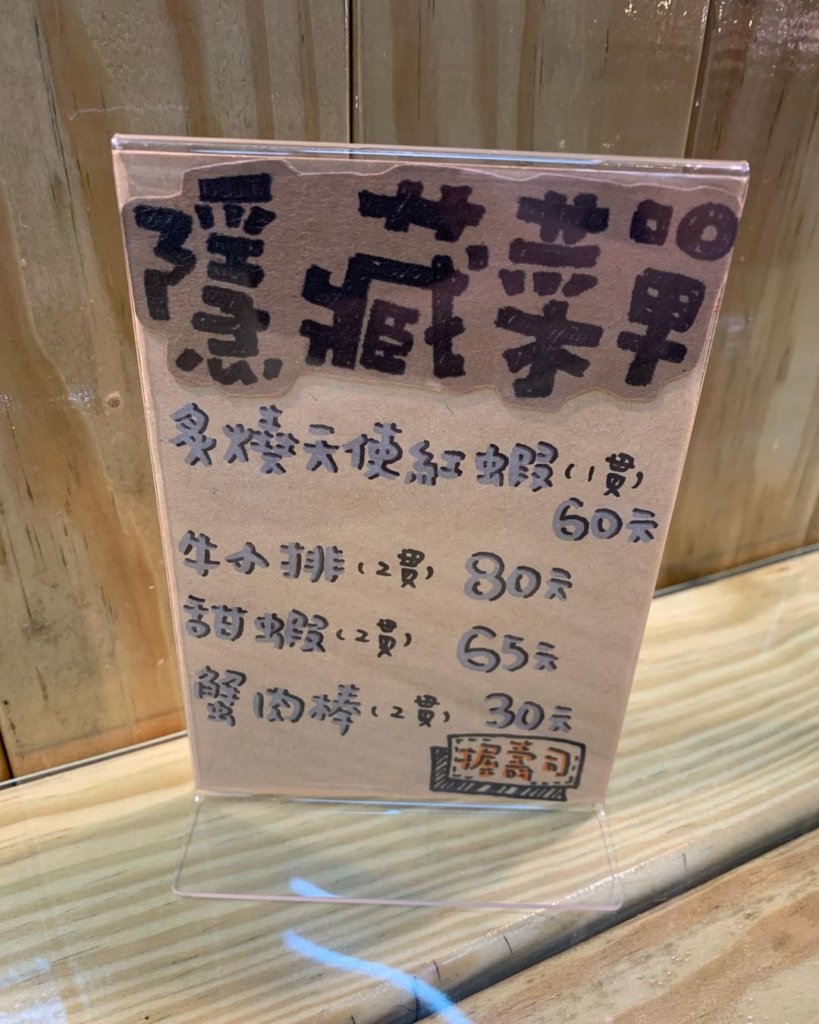 隱藏菜單
炙燒天使紅蝦(1貫)
60元
牛小排(2貫) 80元
甜蝦(2貫) 65元
蟹肉棒(2貫) 30元
握壽司